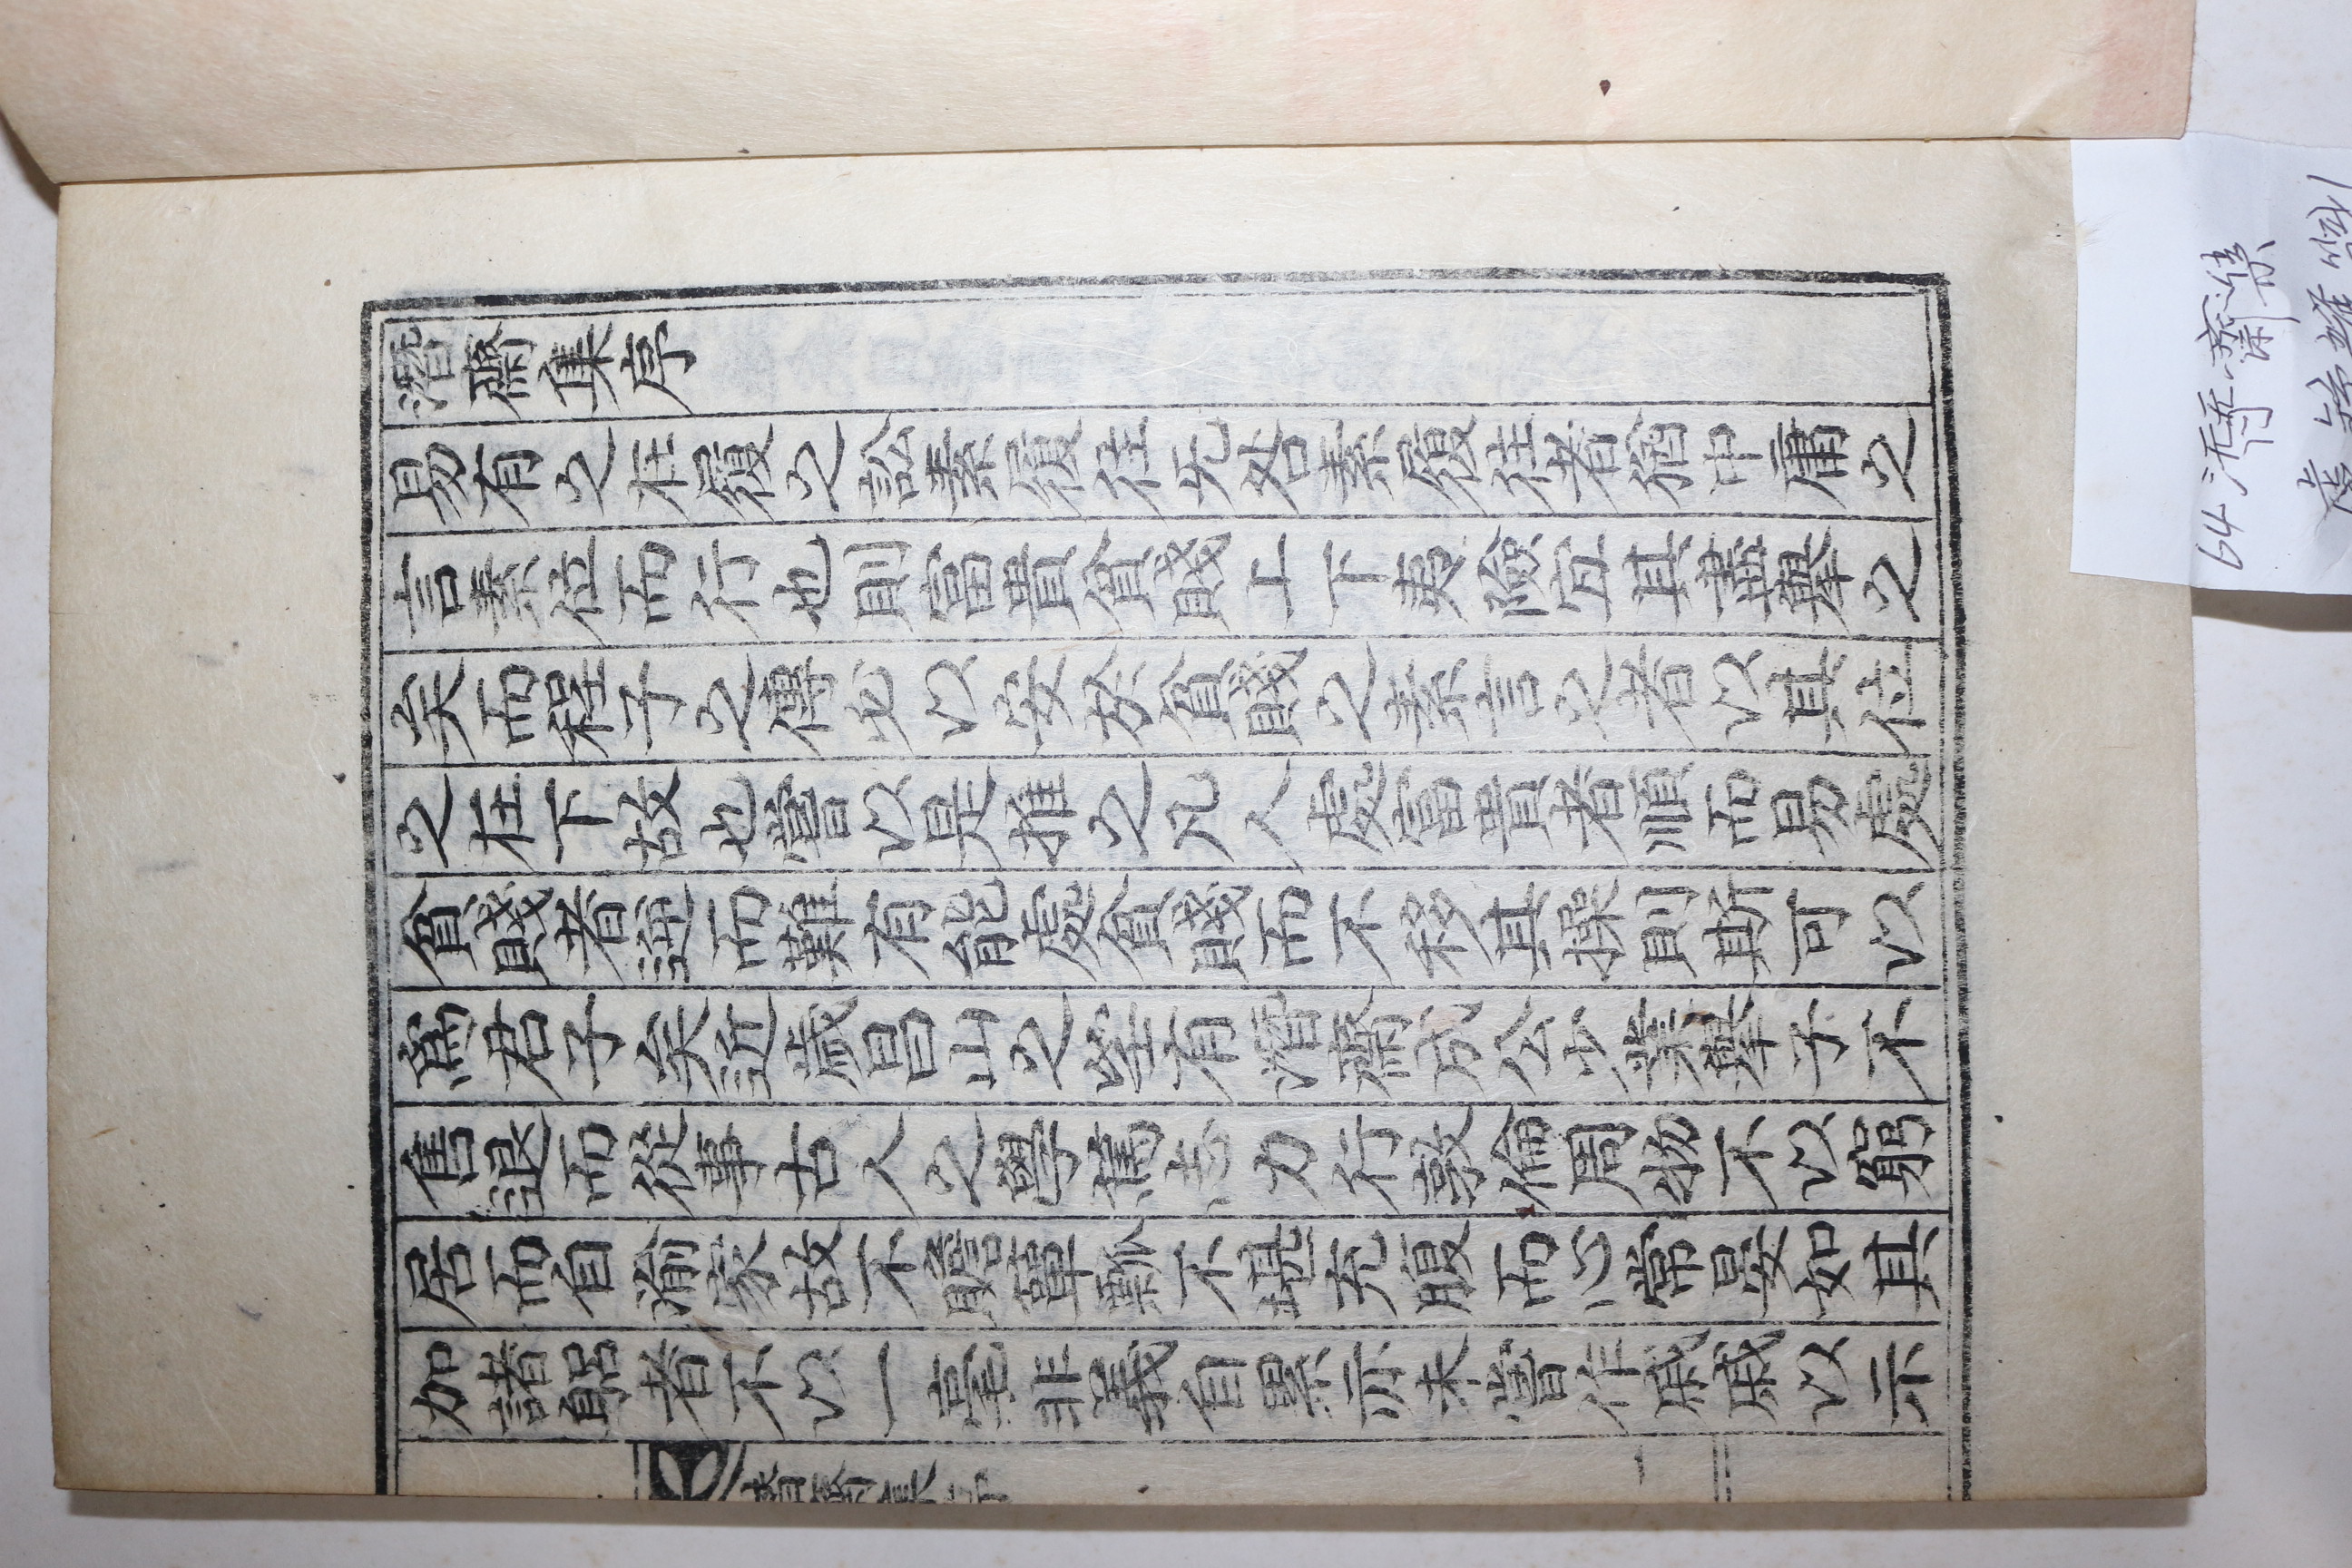 潛齋集序
易有之在履之訟素履往无咎素履往者猶中庸之
言素位而行也則富貴貧賤上下夷險宜其盡擧之
矣而程子之傳必以安於貧賤之素言之者以其位
之在下故也嘗以是推之凡人處富貴者順而易處
貧賤者逆而難有能處貧賤而不移其操則斯可以
爲君子矣近歲昌山之有潛齋成公少業擧子不
售退而從事古人之學志力行敦倫周物不以窮
居而自渝家故不贍簞瓢不堪充腹而心常晏如其
加諸躬者不以一毫非義自累亦未嘗作戚戚以示
潛齋集序 一
64 潛齋集